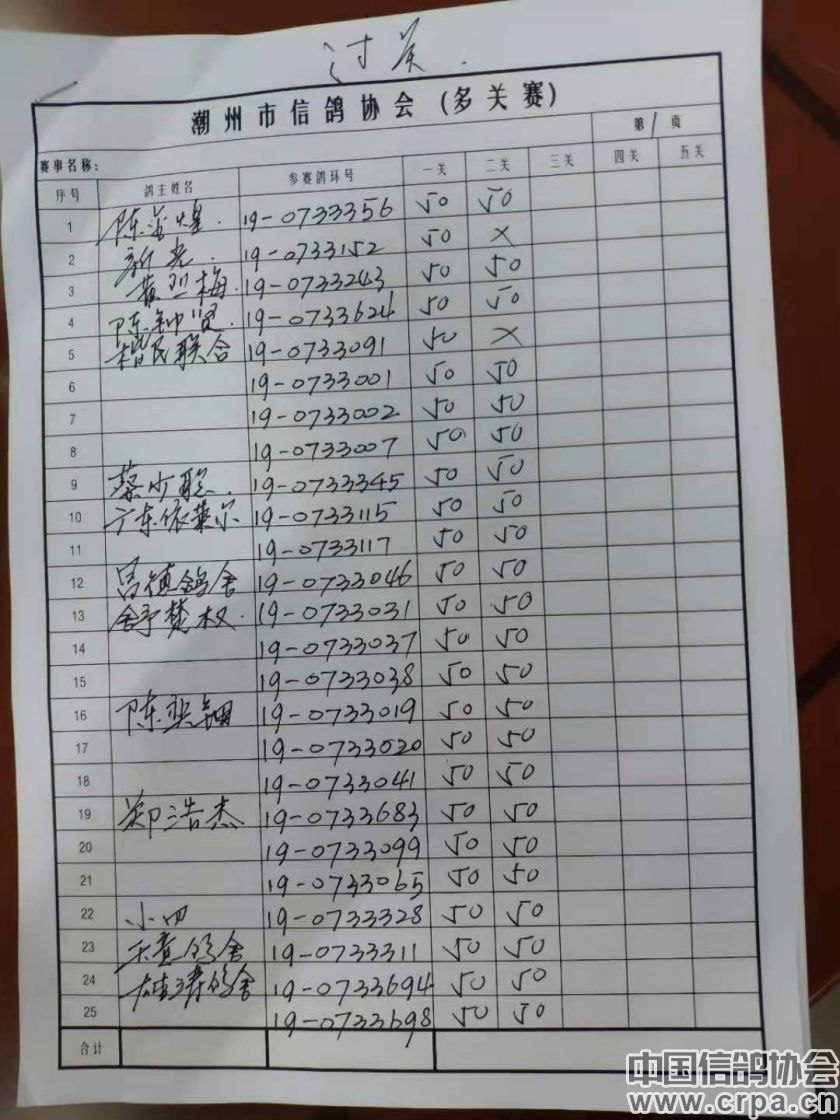 过关.
潮州市信鸽协会(多关赛)
赛事名称: 第1页
序号 鸽主姓名 参赛鸽环号 一关 二关 三关 四关 五关
1 陈 煌 19-0733356 50 50
2 新光. 19-0733152 50 ×
3 黄烈梅. 19-0733243 50 50
4 陈钟贤. 19-0733624 50 50
5 楷民联合 19-0733091 50 ×
6 19-0733001 50 50
7 19-0733002 50 50
8 19-0733007 50 50
9 蔡少聪. 19-0733345 50 50
10 广东依莱尔 19-0733115 50 50
11 19-0733117 50 50
12 吕镇鸽舍 19-0733046 50 50
13 舒楚权. 19-0733031 50 50
14 19-0733037 50 50
15 19-0733038 50 50
16 陈 19-0733019 50 50
17 19-0733020 50 50
18 19-0733041 50 50
19 郑浩杰 19-0733683 50 50
20 19-0733099 50 50
21 19-0733065 50 50
22 小四 19-0733328 50 50
23 鸽舍 19-0733311 50 50
24 鸽舍 19-0733694 50 50
25 19-0733698 50 50
合计
中国信鸽协会
www.crpa.cn